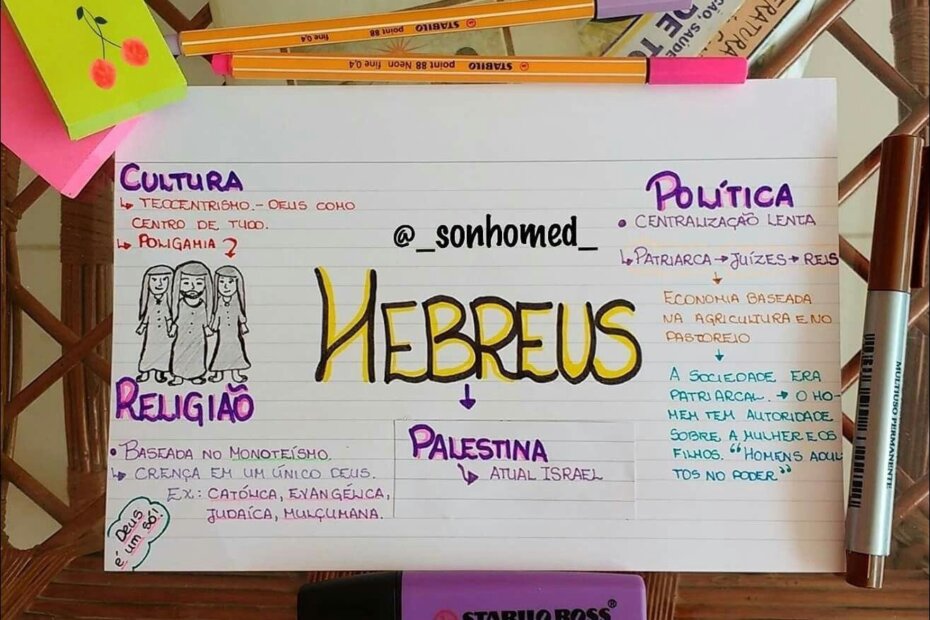 STABILO point 88 fine 0,4
STABILO point 88 Neon fine 0,4
ÇÃO, SAÚDE
DE TO
CULTURA
↳ TEOCENTRISMO.- DEUS COMO
CENTRO DE TUDO.
↳ POLIGAMIA
@_sonhomed_
POLÍTICA
• CENTRALIZAÇÃO LENTA
↳ PATRIARCA → JUÍZES → REIS
↓
ECONOMIA BASEADA
NA AGRICULTURA E NO
PASTOREIO
↓
A SOCIEDADE ERA
PATRIARCAL. → O HO-
MEM TEM AUTORIDADE
SOBRE A MULHER E OS
FILHOS. "HOMENS ADUL
TOS NO PODER"
HEBREUS
↓
PALESTINA
↳ ATUAL ISRAEL
RELIGIÃO
• BASEADA NO MONOTEÍSMO.
↳ CRENÇA EM UM ÚNICO DEUS.
EX.: CATÓLICA, EVANGÉLICA,
JUDAÍCA, MULÇUMANA.
DEUS
É UM SÓ!
MULTIUSO PERMANENTE
STABILO BOSS®